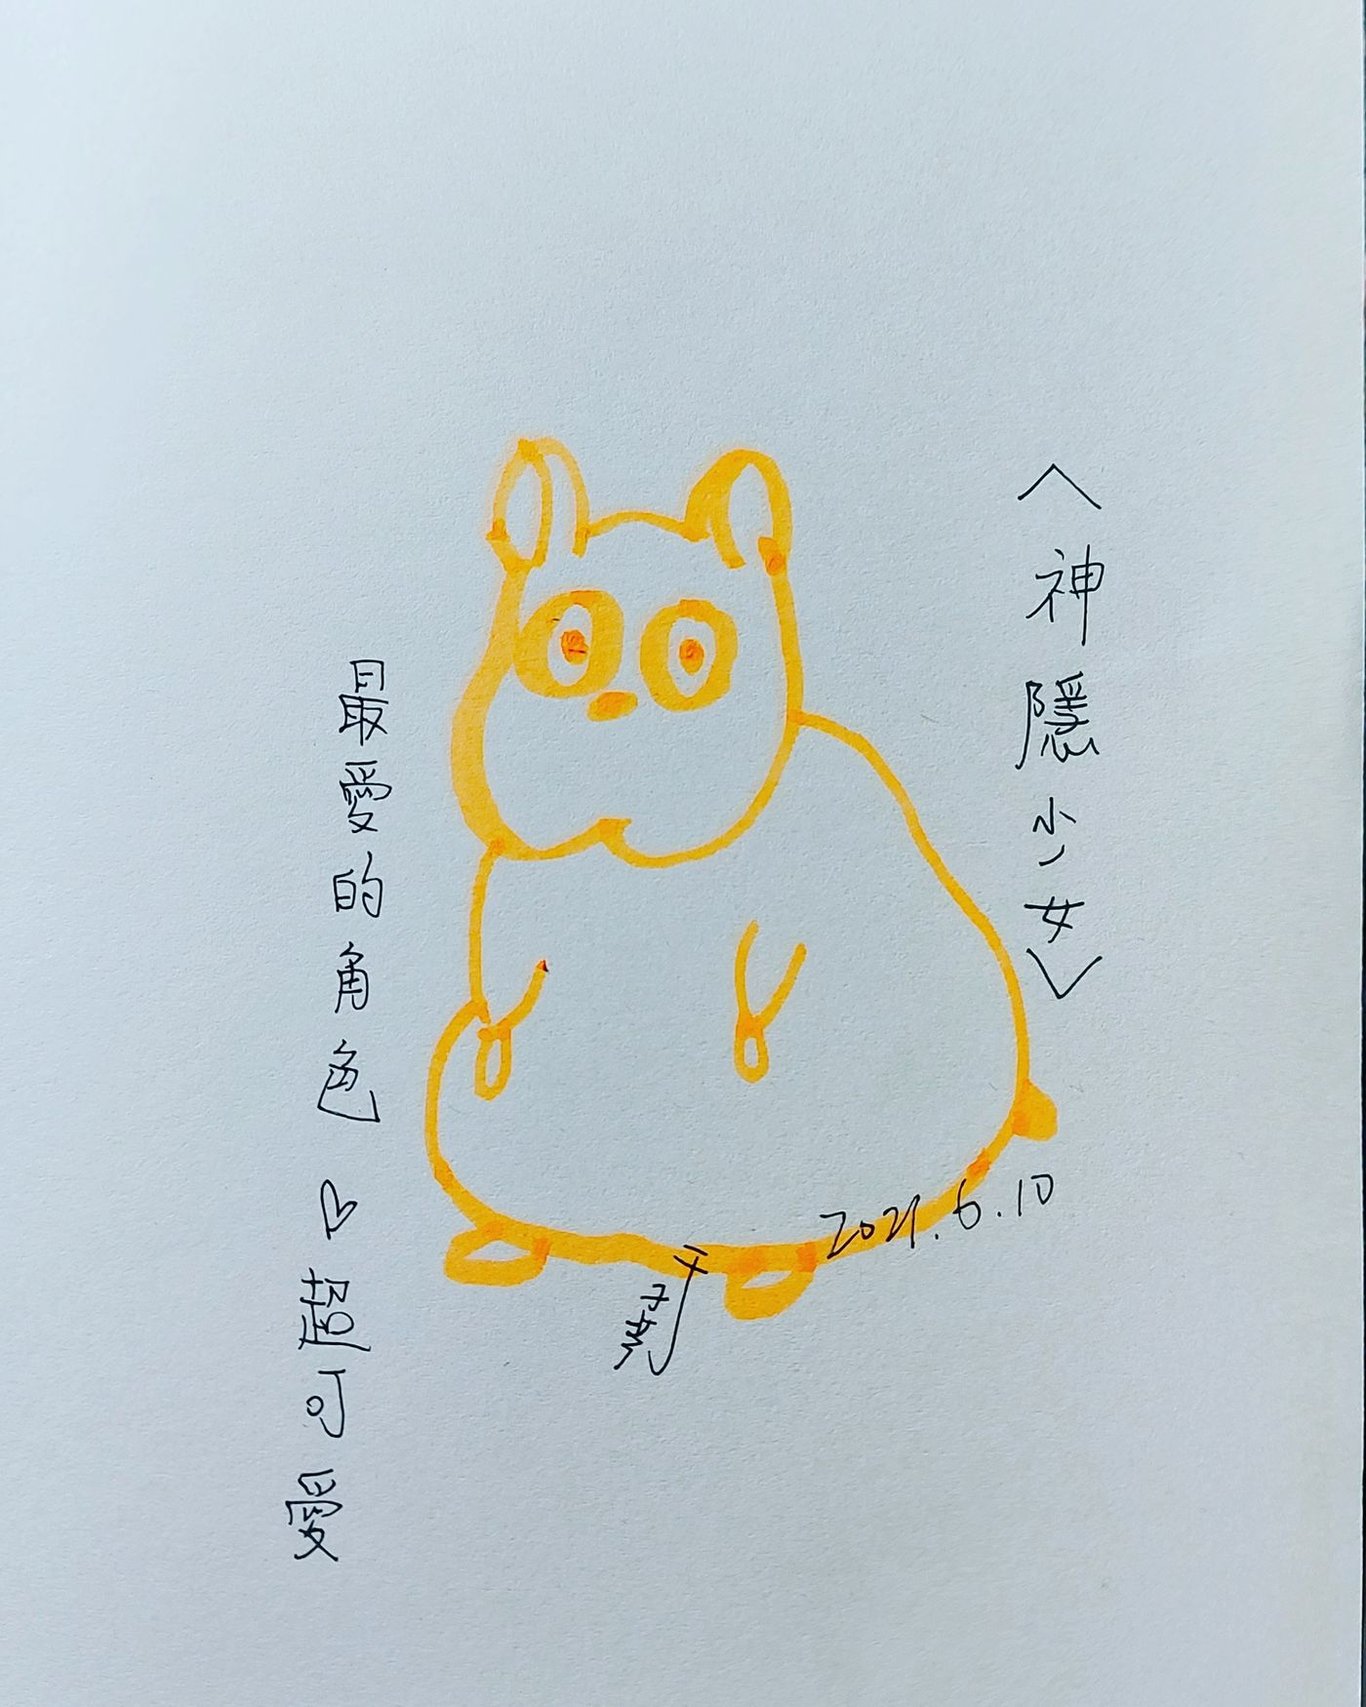 〈神隱少女〉
最愛的角色♡超可愛
2021.6.10